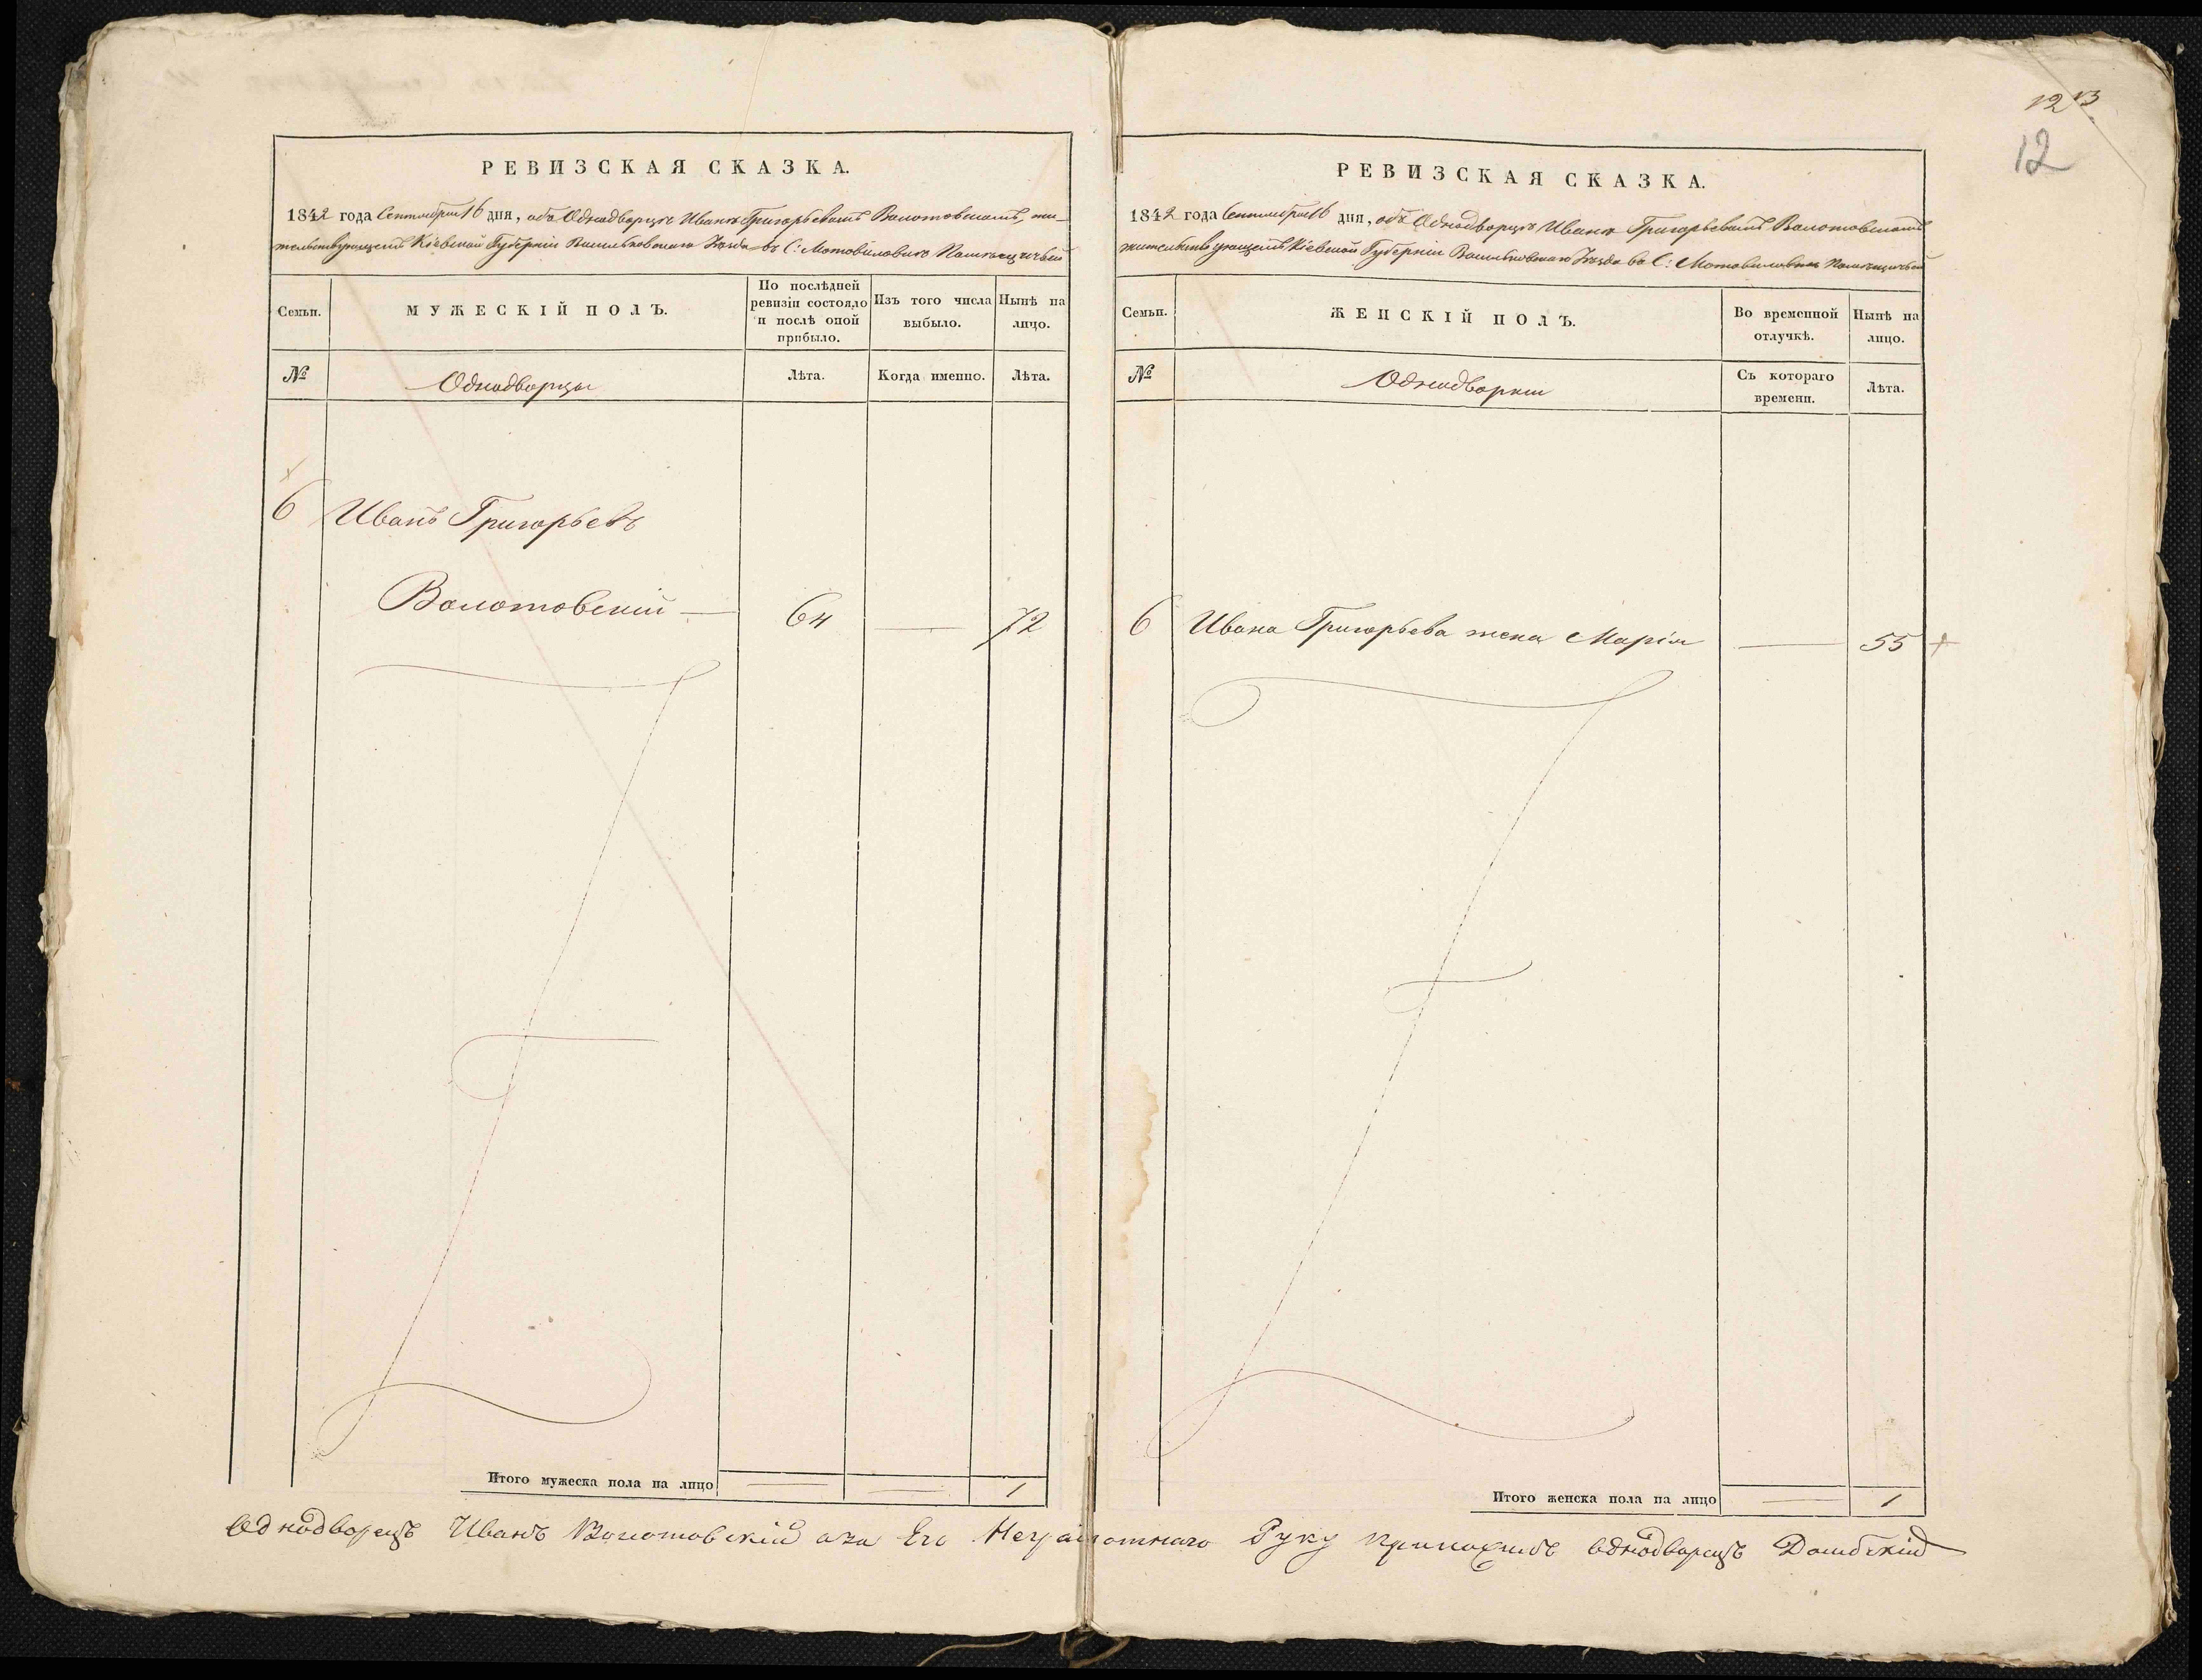 12 13
12
РЕВИЗСКАЯ СКАЗКА.
1842 года Сентября 16 дня, объ Однодворцѣ Иванѣ Григорьевомъ Волотовскомъ, жи-
тельствующемъ Кіевской Губерніи Васильковскаго Уѣзда въ С: Мотовиловкѣ Помѣщичьей
Семьи.
МУЖЕСКІЙ ПОЛЪ.
По послѣдней ревизіи состояло и послѣ оной прибыло.
Изъ того числа выбыло.
Нынѣ на лицо.
№
Однодворцы
Лѣта.
Когда именно.
Лѣта.
6 Иванъ Григорьевъ
Волотовскій — 64 — 72
Итого мужеска пола на лицо — — 1
РЕВИЗСКАЯ СКАЗКА.
1842 года Сентября 16 дня, объ Однодворцѣ Иванѣ Григорьевомъ Волотовскомъ
жительствующемъ Кіевской Губерніи Васильковскаго Уѣзда въ С: Мотовиловкѣ Помѣщичьей
Семьи.
ЖЕНСКІЙ ПОЛЪ.
Во временной отлучкѣ.
Нынѣ на лицо.
№
Однодворки
Съ котораго времени.
Лѣта.
6 Ивана Григорьева жена Марія — 55
Итого женска пола на лицо — 1
Однодворецъ Иванъ Волотовскій аза Его Неграмотнаго Руку приложилъ однодворецъ